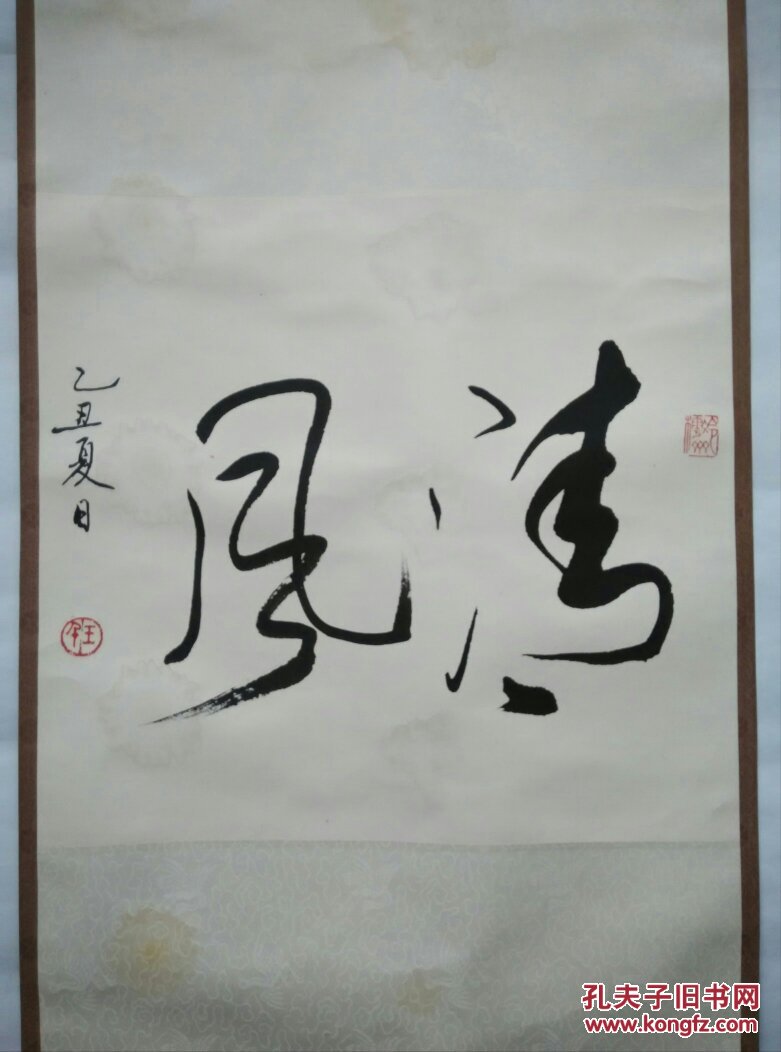 清風
乙丑夏日
孔夫子旧书网
www.kongfz.com